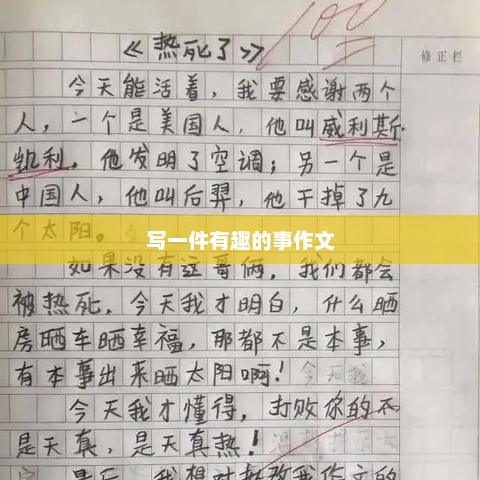 100
《热死了》
修正栏
今天能活着，我要感谢两个
人，一个是美国人，他叫威利斯
凯利，他发明了空调；另一个是
中国人，他叫后羿，他干掉了九
个太阳。
写一件有趣的事作文
如果没有这哥俩，我们都会
被热死，今天我才明白，什么晒
房晒车晒幸福，那都不是本事，
有本事出来晒太阳啊！
今天我才懂得，打败你的不
是天真，是天真热！
最后，我想对批改我作文的